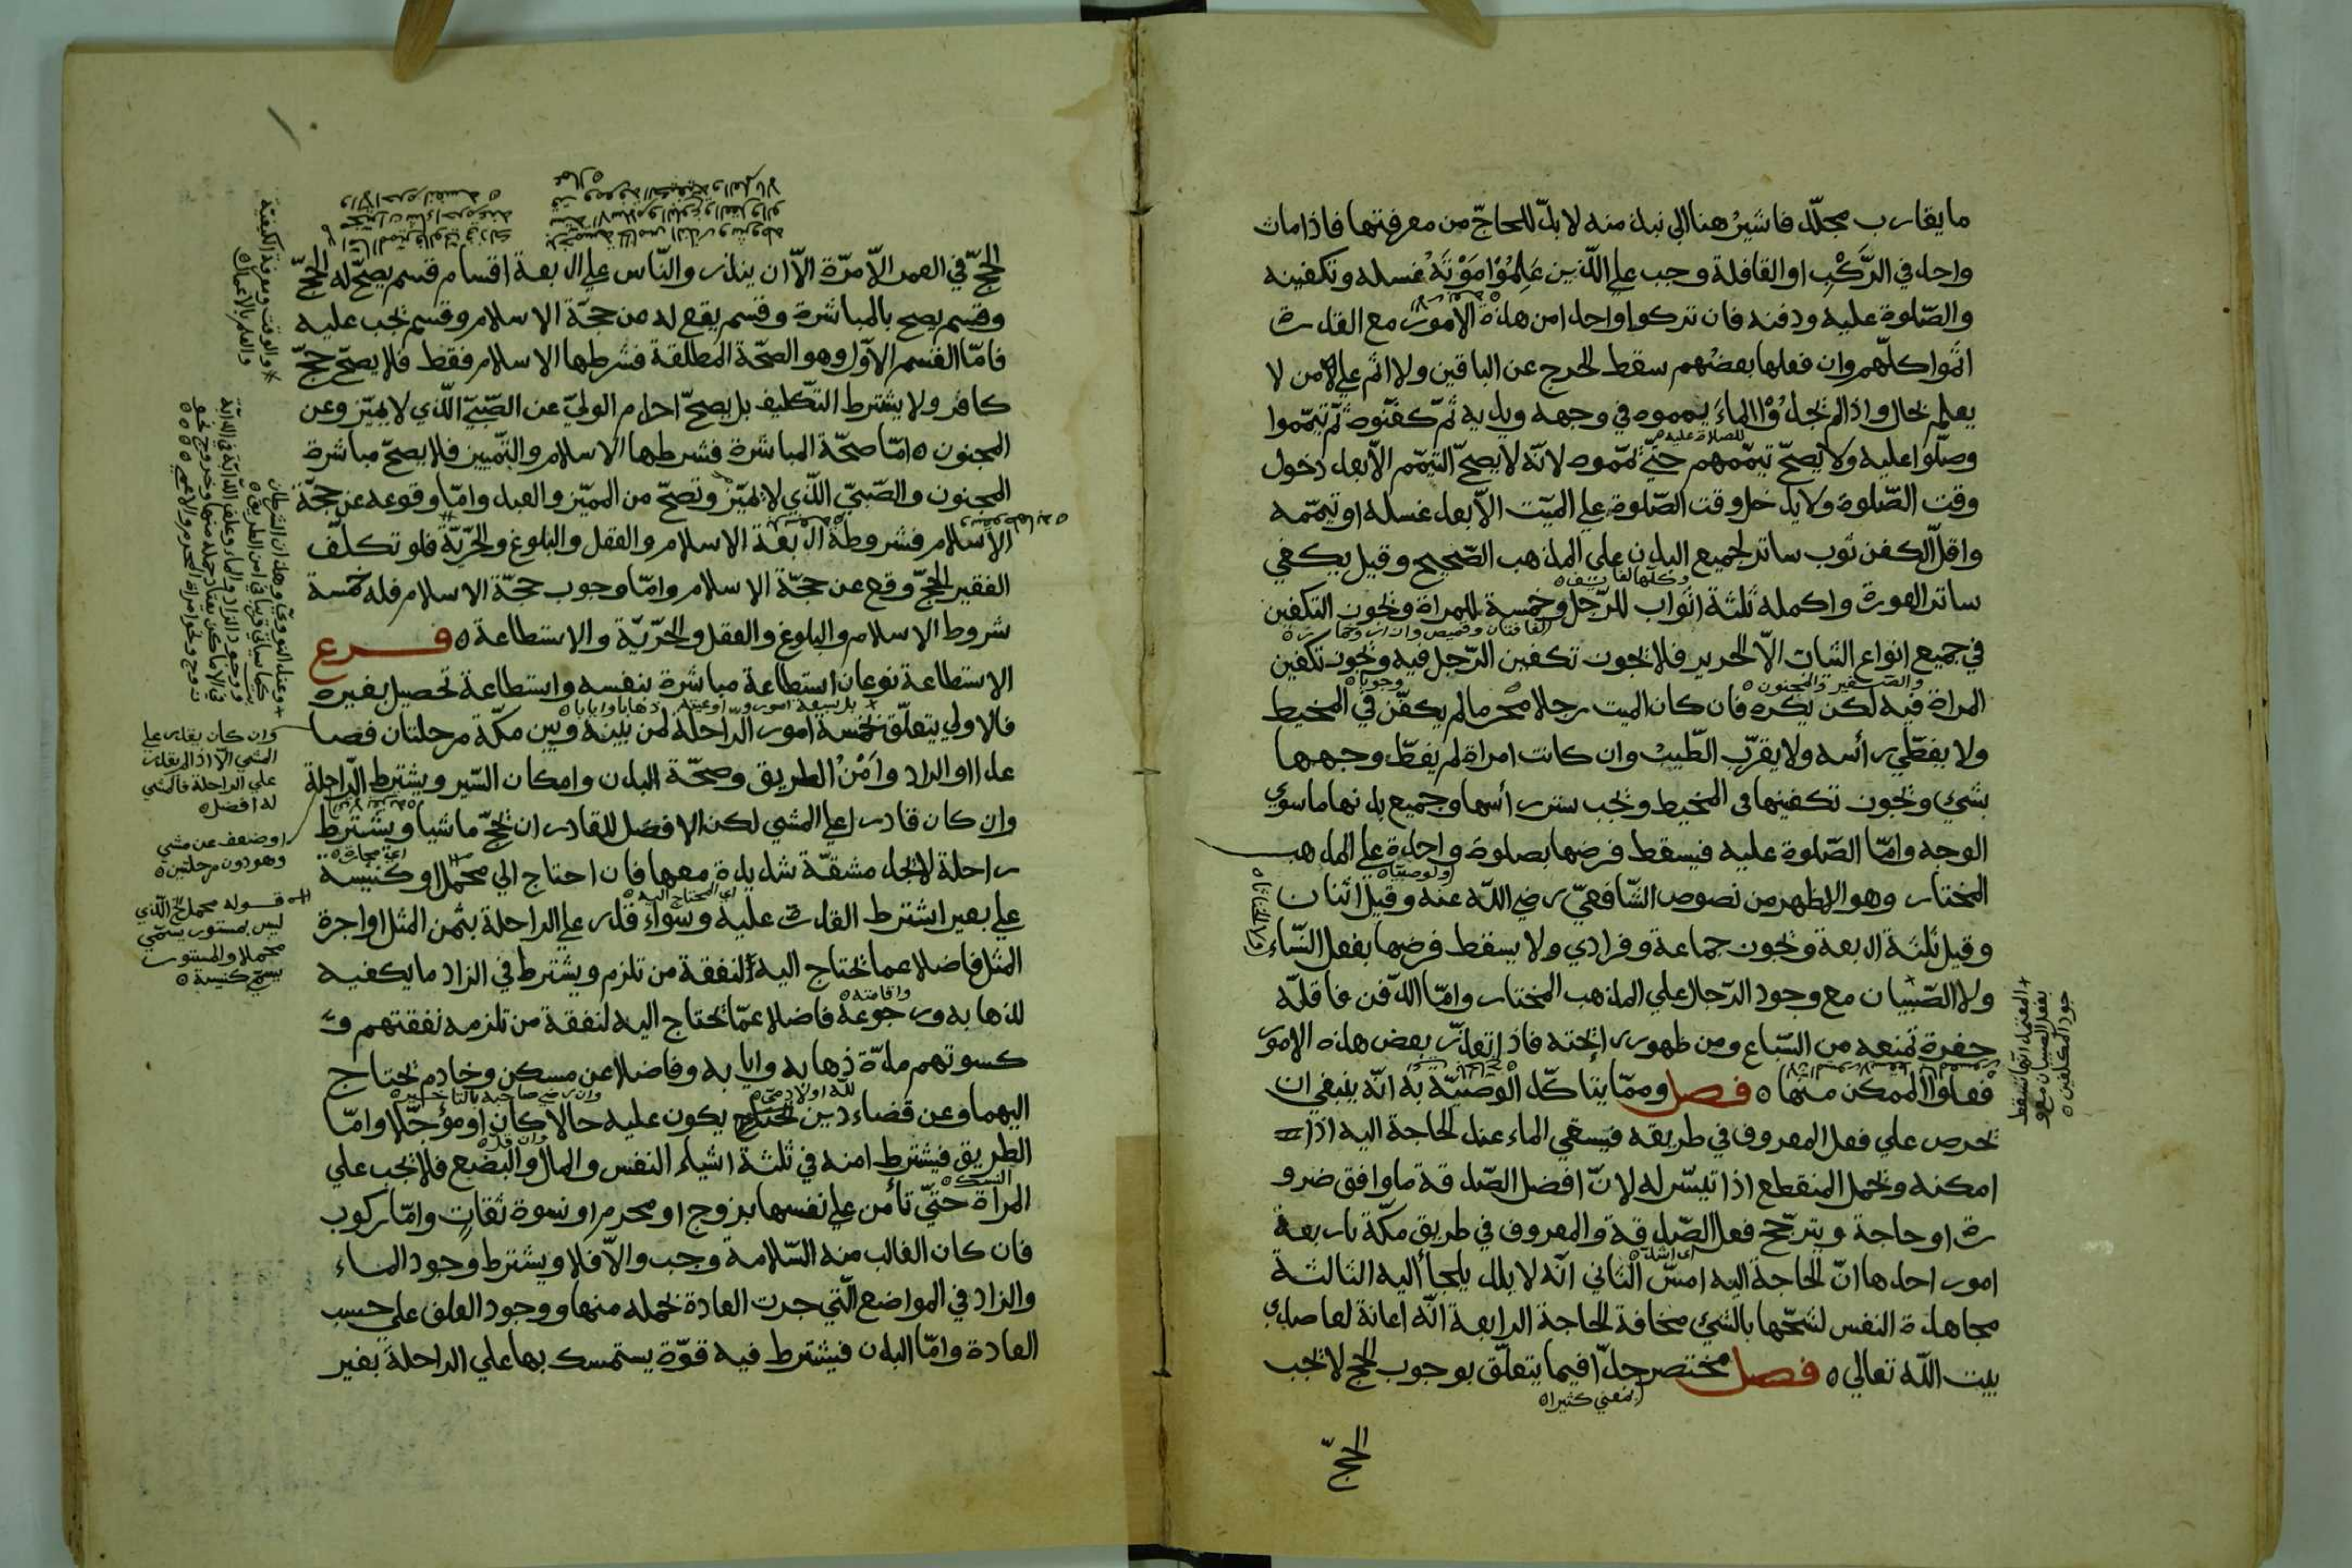 ما يقارب مجلّد فاشيرُ هنا الي نبذ منه لا بدّ للحاجّ من معرفتها فاذا مات
واحد في الرَّكْبِ او القافلة وجب علي الّذين عَلِمُوْا مَوْتَهُ غسله وتكفينه
والصّلوة عليه ودفنه فان تركوا واحدا من هذه الامور مع القدرة
اثموا كلّهم وان فعلها بعضُهم سقط الحرج عن الباقين ولا اثم علي من لا
يعلم بحال واذا لم يجدُوْا الماءَ يمموه في وجهه ويديه ثمّ كفّنوه ثمّ تيمّموا
للصلاة عليه
وصلّوا عليه ولا يصحّ تيمّمهم حتّي يمّموه لانّه لا يصحّ التيمّم الّا بعد دخول
وقت الصّلوة ولا يدخل وقت الصّلوة علي الميّت الّا بعد غسله او تيمّمه
واقلّ الكفن ثوب ساتر لجميع البدن علي المذهب الصّحيح وقيل يكفي
وكلّها لفائف
ساتر العورة واكمله ثلثة اثواب للرّجل وخمسة للمراة ويجوز التكفين
لفافتان وقميص وازار وخمار
في جميع انواع الثياب الّا الحرير فلا يجوز تكفين الرّجل فيه ويجوز تكفين
والصّغير والمجنون
وجوبا
المراة فيه لكن يكره فان كان الميت رجلا محرما لم يكفّن في المخيط
ولا يغطّي رأسه ولا يقرّب الطّيب وان كانت امراة لم يغطّ وجهها
بشئ ويجوز تكفينها في المخيط ويجب ستر رأسها وجميع بدنها ما سوي
الوجه وامّا الصّلوة عليه فيسقط فرضها بصلوة واحد علي المذهب
ولو صبيّا
المختار وهو الاظهر من نصوص الشّافعيّ رضي اللّه عنه وقيل اثنان
وقيل ثلثة اربعة ويجوز جماعة وفرادي ولا يسقط فرضها بفعل النّساء
ولا الصّبيان مع وجود الرّجال علي المذهب المختار وامّا الدّفن فاقلّه
+ المعتمد انّها تسقط
بفعل الصبيان مع و
جود المكلّفين
حفرة تمنعه من السّباع ومن ظهور رائحته فاذا تعذّر بعض هذه الامور
فعلوا الممكن منها فصل وممّا يتاكّد الوصيّة به انّه ينبغي ان
يحرص علي فعل المعروف في طريقه فيسقي الماء عند الحاجة اليه اذا
امكنه ويحمل المنقطع اذا تيسّر له لانّ افضل الصّدقة ما وافق ضرو
رة او حاجة ويترجّح فعل الصّدقة والمعروف في طريق مكّة باربعة
اي اشد
امور احدها انّ الحاجة اليه امسّ الثاني انّه لا بلد يلجأ اليه الثالثة
مجاهدة النفس لشحّها بالشئ مخافة الحاجة الرابعة انّه اعانة لقاصدي
بيت اللّه تعالي فصل مختصر جدّا فيما يتعلّق بوجوب الحج لا يجب
بمعني كثيرا
الحجّ
الحجّ في العمر الّا مرّة الّا ان ينذر والنّاس علي اربعة اقسام قسم يصحّ له الحجّ
وقسم يصح بالمباشرة وقسم يقع له من حجّة الاسلام وقسم يجب عليه
فامّا القسم الاوّل وهو الصحّة المطلقة فشرطها الاسلام فقط فلا يصحّ حجّ
كافر ولا يشترط التكليف بل يصحّ احرام الوليّ عن الصّبيّ الّذي لا يميّز وعن
المجنون امّا صحّة المباشرة فشرطها الاسلام والتّمييز فلا يصحّ مباشرة
المجنون والصّبيّ الّذي لا يميّز وتصحّ من المميّز والعبد وامّا وقوعه عن حجّة
الاسلام فشروطه اربعة الاسلام والعقل والبلوغ والحرّيّة فلو تكلّف
الفقير الحجّ وقع عن حجّة الاسلام وامّا وجوب حجّة الاسلام فله خمسة
شروط الاسلام والبلوغ والعقل والحرّيّة والاستطاعة فرع
الاستطاعة نوعان استطاعة مباشرة بنفسه واستطاعة تحصيل بغيره
ذهابا وايابا
فالاولي يتعلّق بخمسة امور الرّاحلة لمن بينه وبين مكّة مرحلتان فصا
عدا والزاد وامْنُ الطريق وصحّة البدن وامكان السّير ويشترط الرّاحلة
وان كان قادرا علي المشي لكن الافضل للقادر ان يحجّ ماشيا ويشترط
راحلة لا يجد مشقّة شديدة معها فان احتاج الي محمل او كنيسة
اي المحتاج اليه
علي بعير اشترط القدرة عليه وسواء قدر علي الراحلة بثمن المثل او اجرة
المثل فاضلا عما يحتاج اليه لنفقة من تلزم ويشترط في الزاد ما يكفيه
واقامته
لذهابه ورجوعه فاضلا عمّا يحتاج اليه لنفقة من تلزمه نفقتهم و
كسوتهم مدّة ذهابه وايابه وفاضلا عن مسكن وخادم يحتاج
للّه او لآدميّ
وان رضي صاحبه بالتاخير
اليهما وعن قضاء دين يكون عليه حالا كان او مؤجّلا وامّا
وان قل
الطريق فيشترط امنه في ثلثة اشياء النفس والمال والبضع فلا يجب علي
النسك
المراة حتّي تأمن علي نفسها بزوج او محرم او نسوة ثقات وامّا ركوب
فان كان الغالب منه السّلامة وجب والّا فلا ويشترط وجود الماء
والزاد في المواضع الّتي جرت العادة بحمله منها ووجود العلف علي حسب
العادة وامّا البدن فيشترط فيه قوّة يستمسك بها علي الراحلة بغير
والوقت ومعرفة الكيفيّة
والعلم بالاعمال
وان كان يقدر علي
المشي الّا اذا لم يقدر
علي الراحلة فالمشي
له افضل
او ضعف عن مشي
وهو دون مرحلتين
قوله محمل الّذي
ليس بمستور يسمّي
محملا والمستور
يسمّي كنيسة